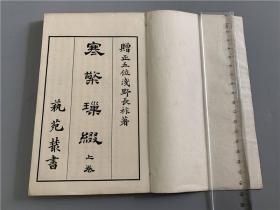 贈正五位淺野長祚著
寒檠璅綴 上卷
藝苑叢書